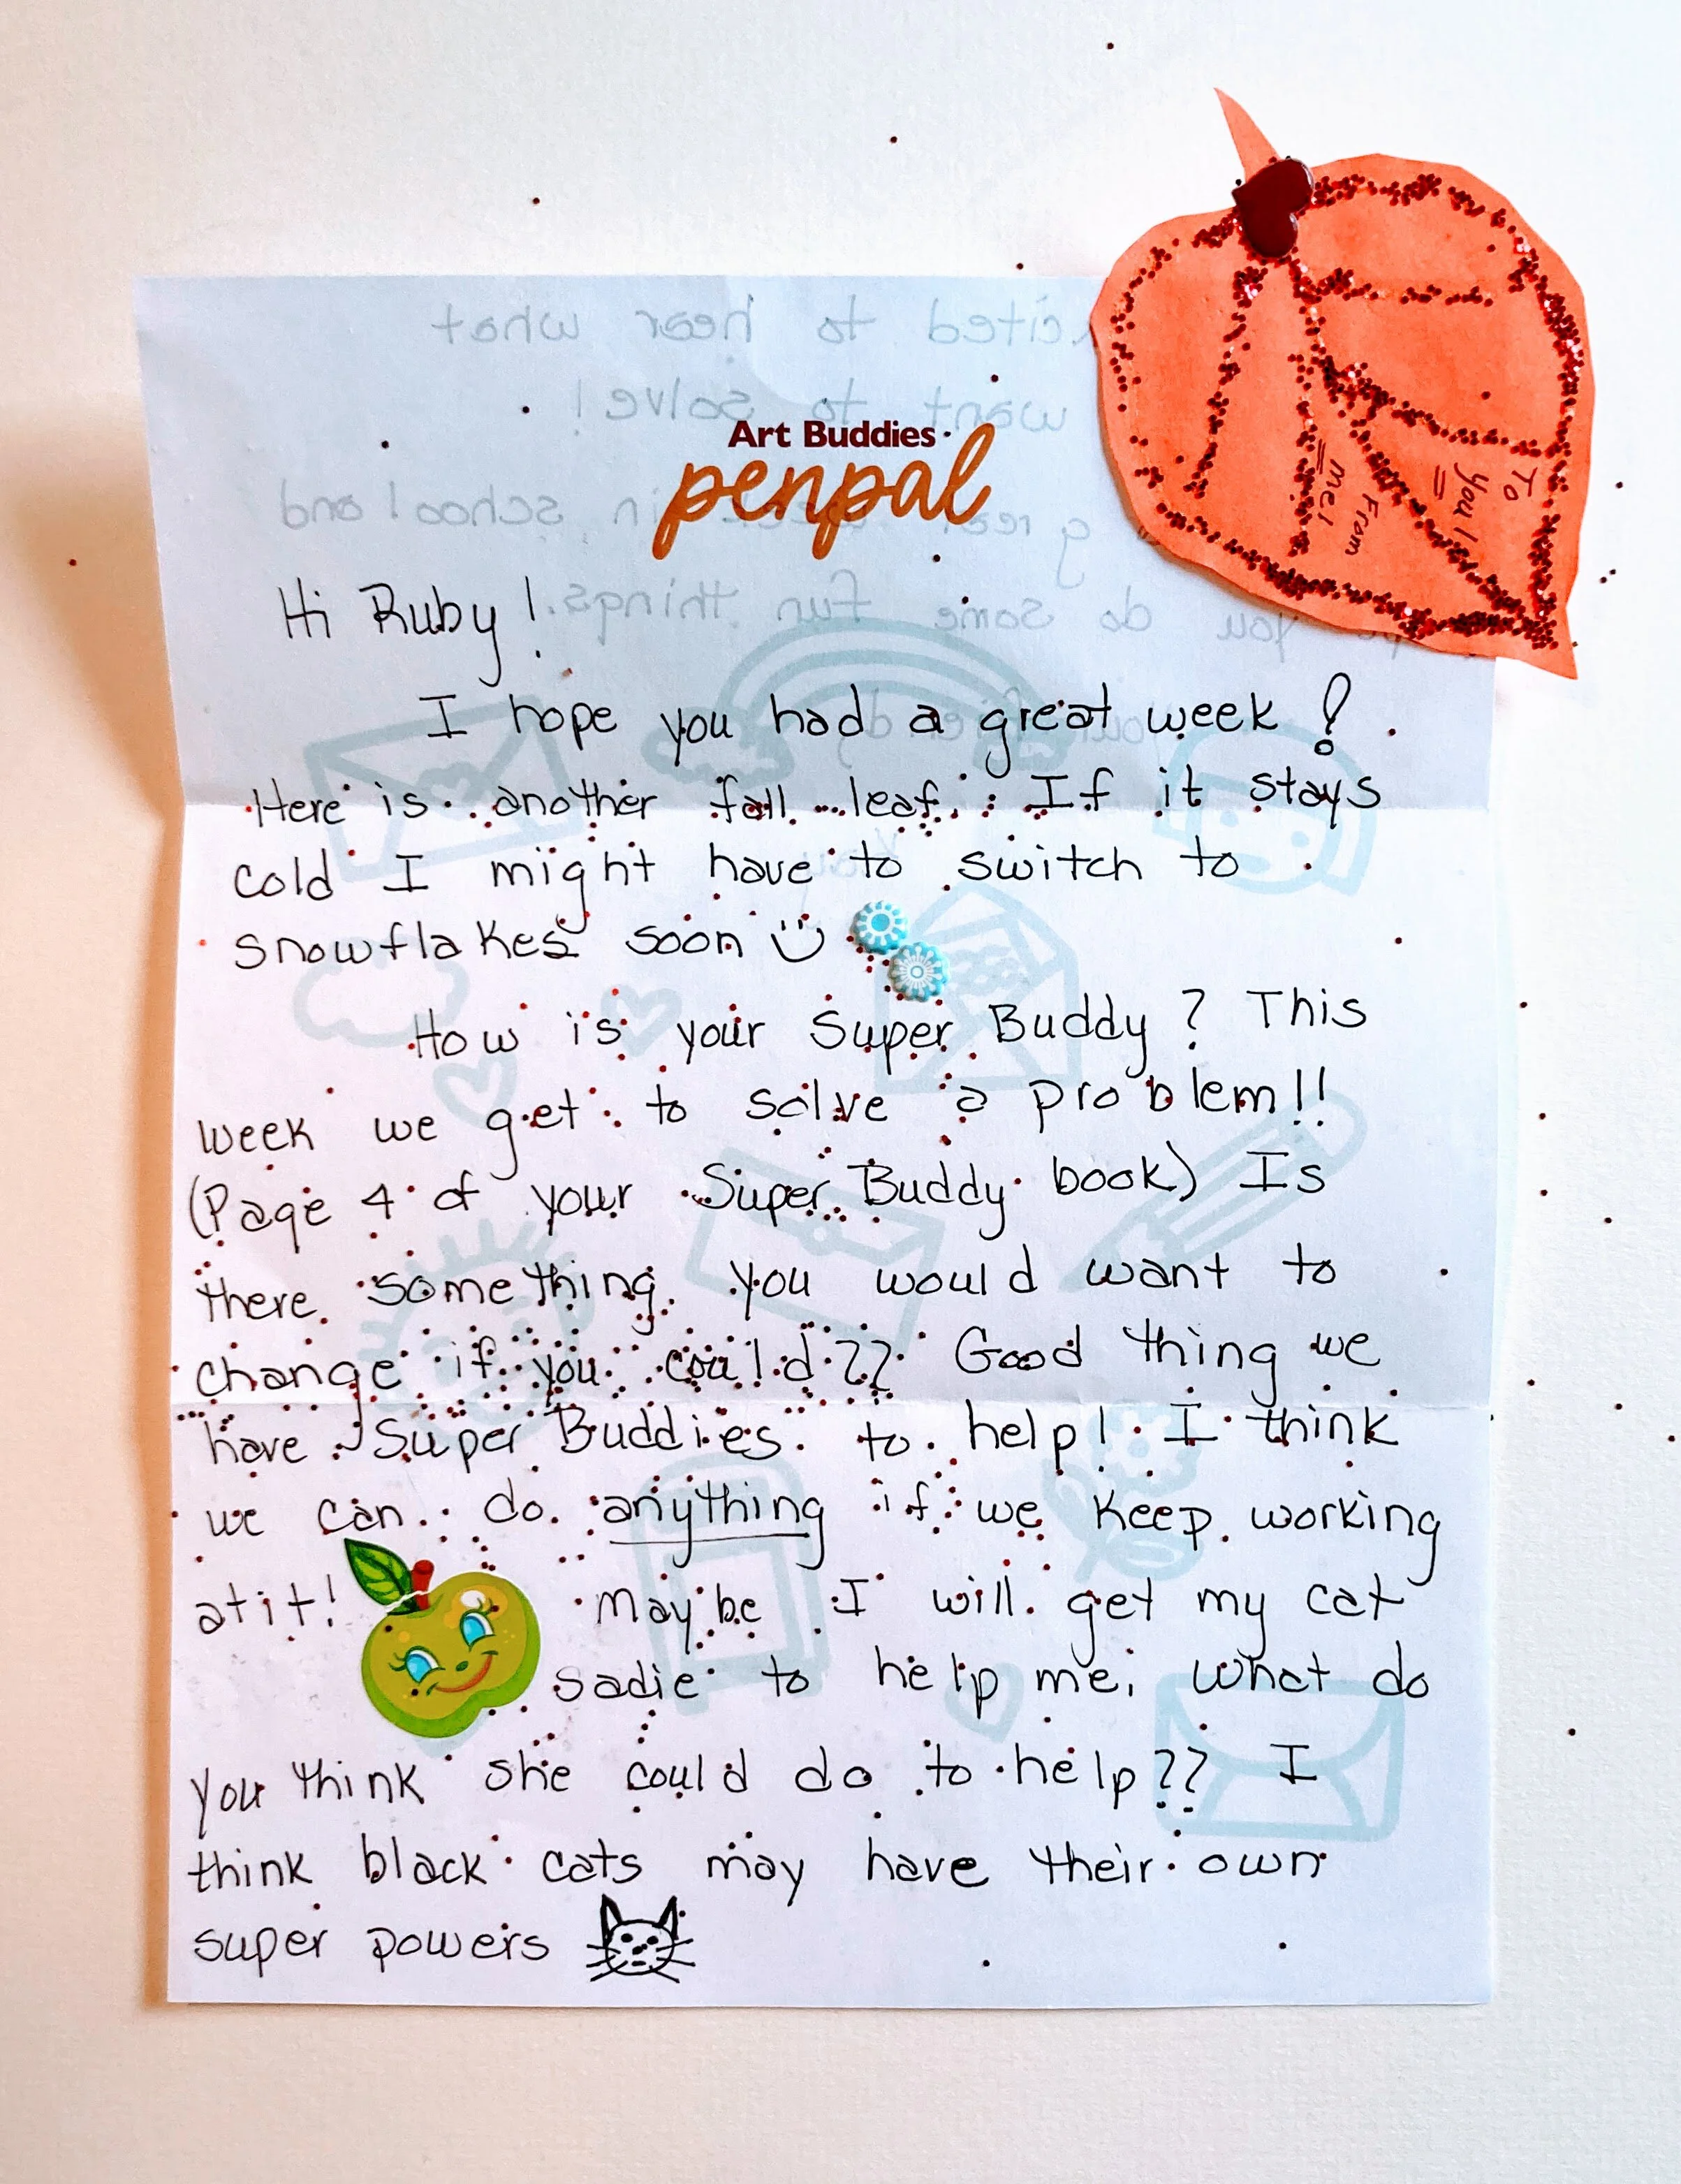 Art Buddies
penpal
To
you!
From
me!
Hi Ruby!
I hope you had a great week!
Here is another fall leaf. If it stays
cold I might have to switch to
snowflakes soon
How is your Super Buddy? This
week we get to solve a problem!!
(Page 4 of your Super Buddy book) Is
there something you would want to
change if you could?? Good thing we
have Super Buddies to help! I think
we can do anything if we keep working
at it! Maybe I will get my cat
Sadie to help me. What do
you think she could do to help?? I
think black cats may have their own
super powers